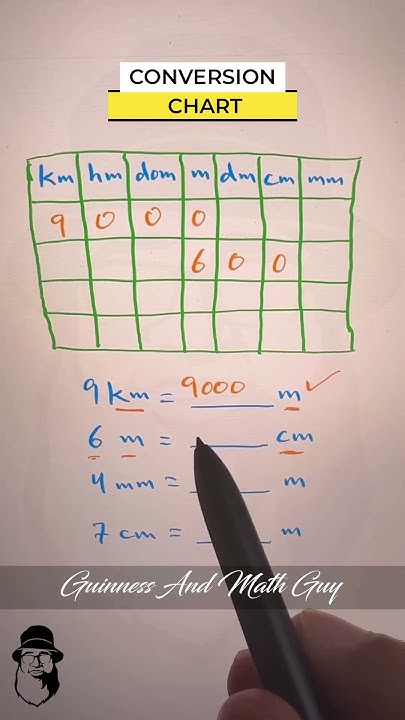 CONVERSION
CHART
km hm dam m dm cm mm
9 0 0 0
6 0 0
9 km = 9000 m ✓
6 m = ____ cm
4 mm = ____ m
7 cm = ____ m
Guinness And Math Guy